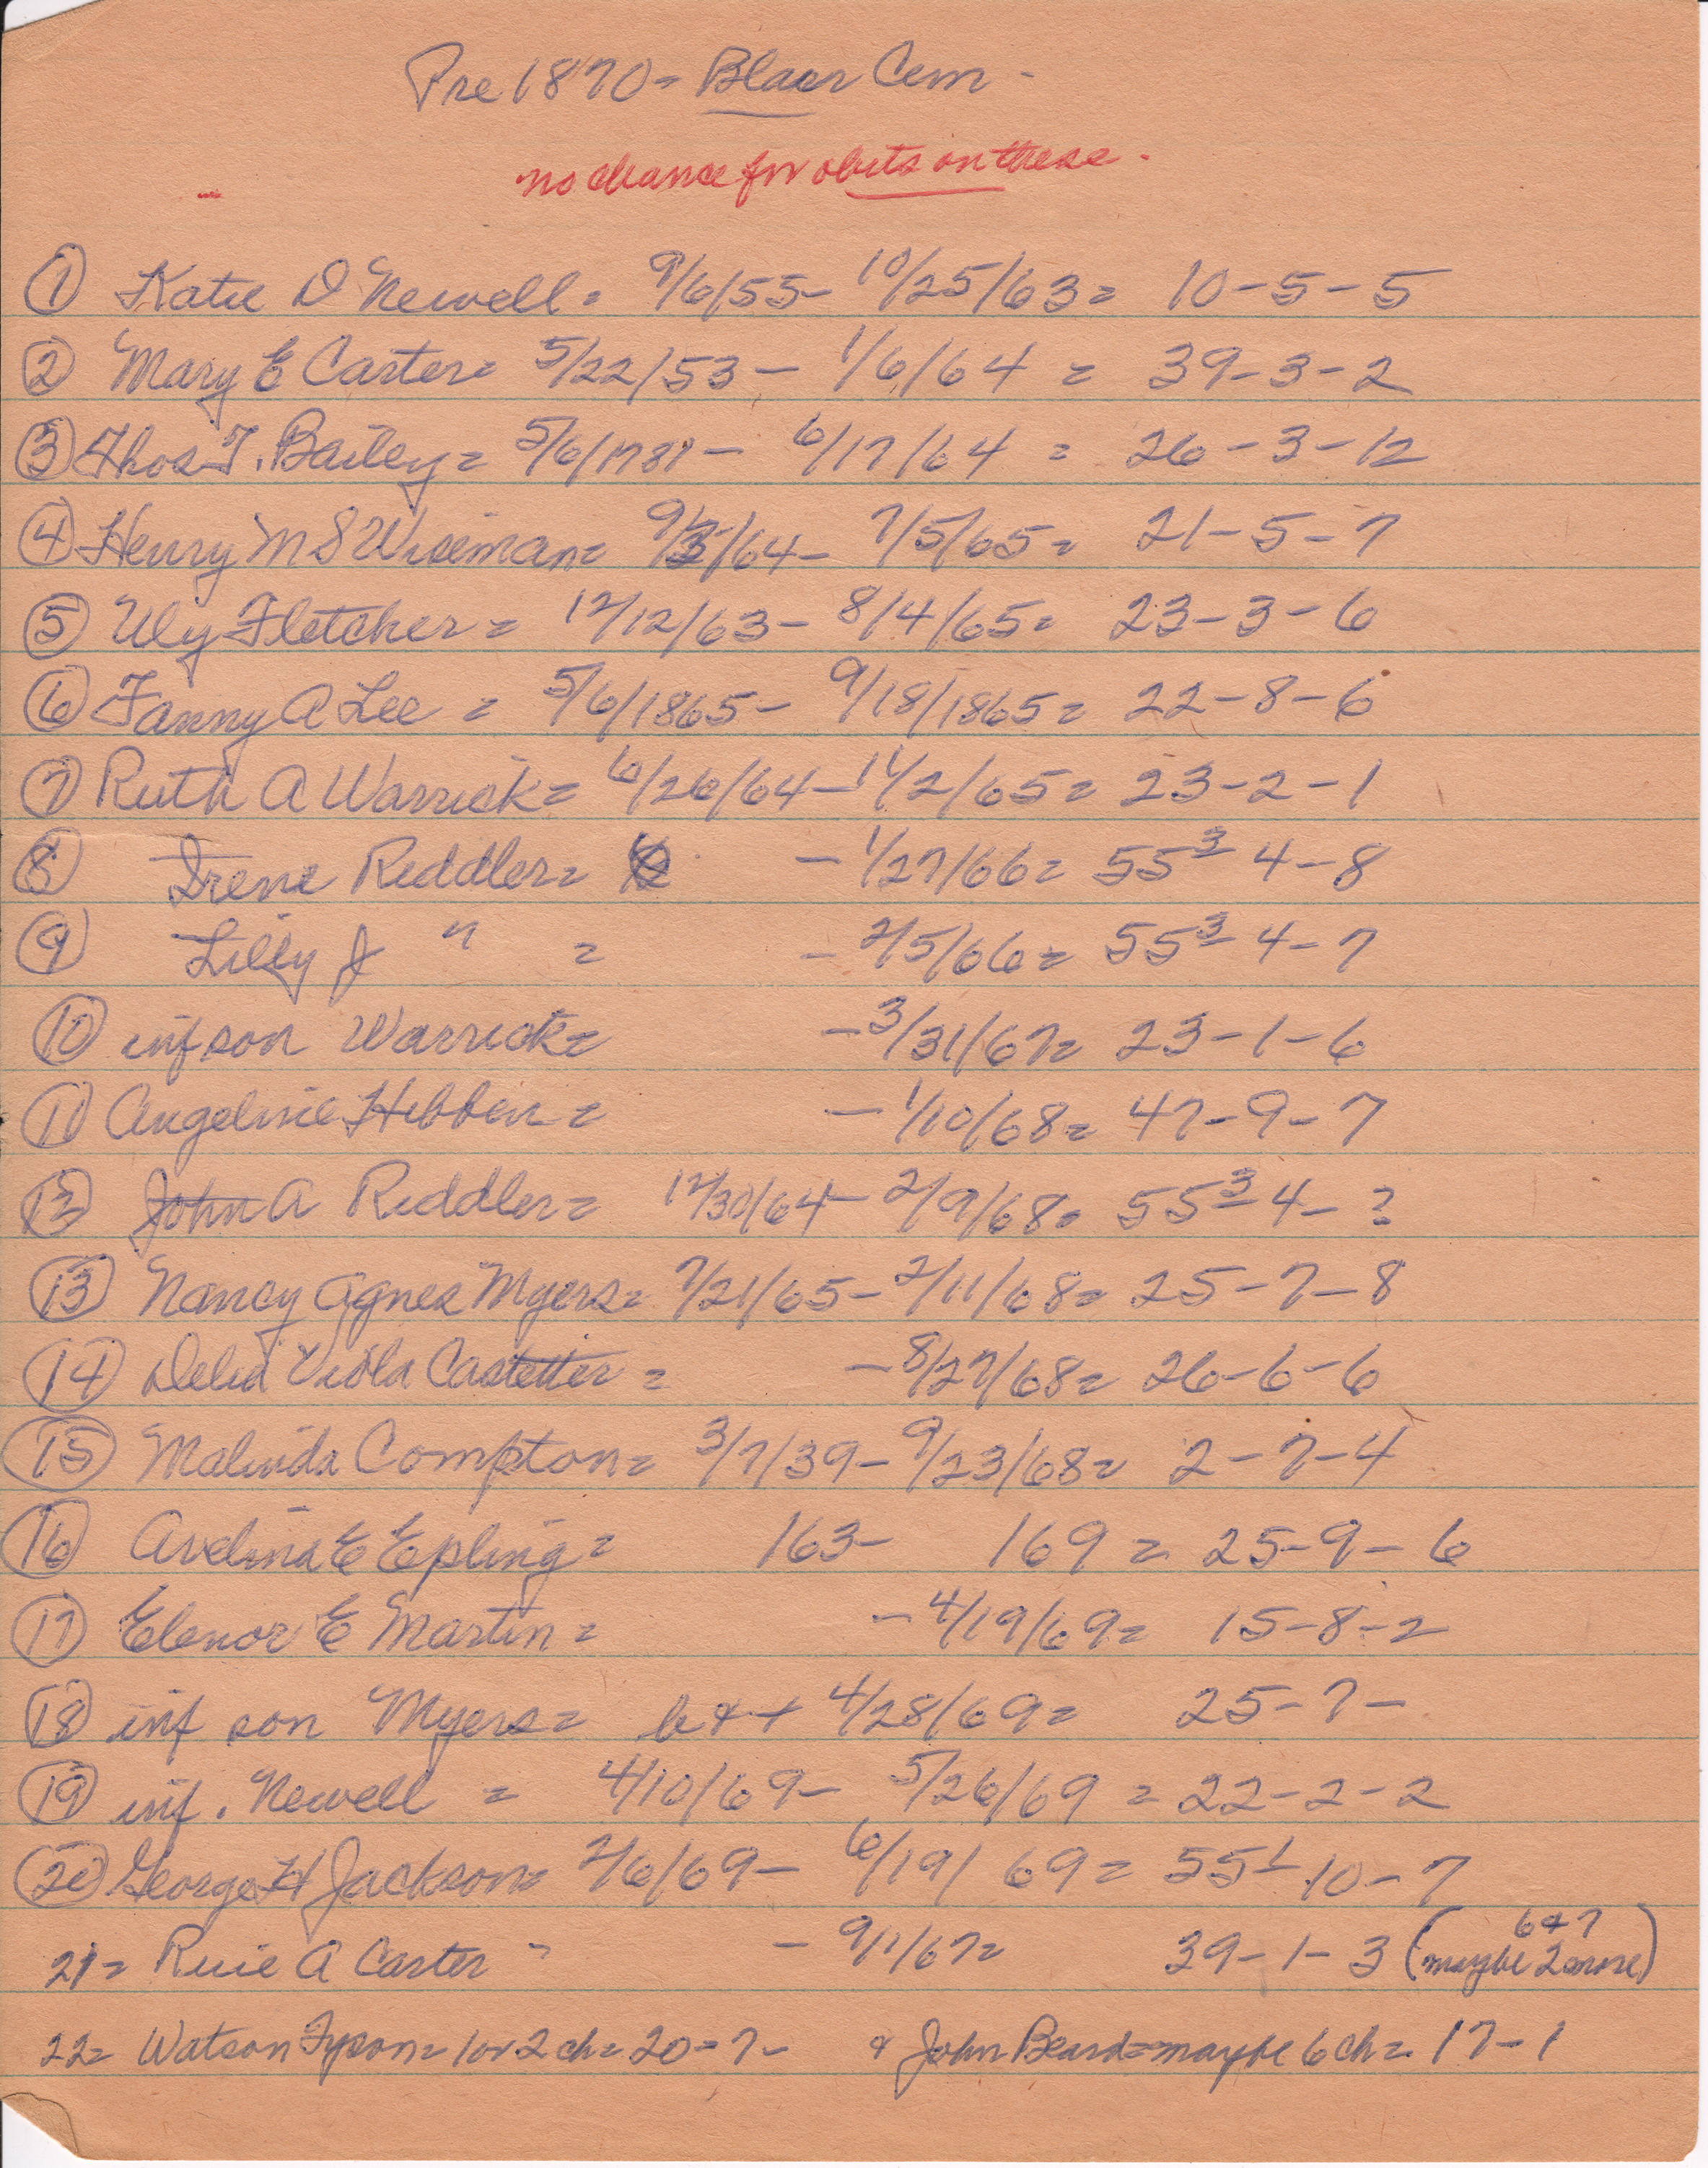 Pre 1870 = Blair Cem -
no chance for obits on these -
① Katie D Newell = 9/6/55 - 10/25/63 = 10-5-5
② Mary E Carter = 5/22/53 - 1/6/64 = 39-3-2
③ Thos T. Bailey = 5/6/1781 - 6/17/64 = 26-3-12
④ Henry M S Wiseman = 9/3/64 - 7/5/65 = 21-5-7
⑤ Uly Fletcher = 12/12/63 - 8/4/65 = 23-3-6
⑥ Fanny A Lee = 5/6/1865 - 9/18/1865 = 22-8-6
⑦ Ruth A Warrick = 6/26/64 - 11/2/65 = 23-2-1
⑧ Irene Riddler = - 1/27/66 = 55³-4-8
⑨ Lilly J " = - 2/5/66 = 55³-4-7
⑩ inf son Warrick = - 3/31/67 = 23-1-6
⑪ Angelinie Hibben = - 1/10/68 = 47-9-7
⑫ John A Riddler = 12/30/64 - 2/9/68 = 55³-4-?
⑬ Nancy Agnes Myers = 7/21/65 - 2/11/68 = 25-7-8
⑭ Delia Viola Castetter = - 8/27/68 = 26-6-6
⑮ Malinda Compton = 3/7/39 - 9/23/68 = 2-7-4
⑯ Avelina E Epling = 163 - 169 = 25-9-6
⑰ Elenor E Martin = - 4/19/69 = 15-8-2
⑱ inf son Myers = b & + 4/28/69 = 25-7-
⑲ inf. Newell = 4/10/69 - 5/26/69 = 22-2-2
⑳ George H Jackson = 2/6/69 - 6/19/69 = 55¹-10-7
21 = Ruie A Carter = - 9/1/67 = 39-1-3 (maybe 2 more) 6 & 7
22 = Watson Tyson = 1 or 2 ch = 20-7- & John Beard = maybe 6 ch = 17-1